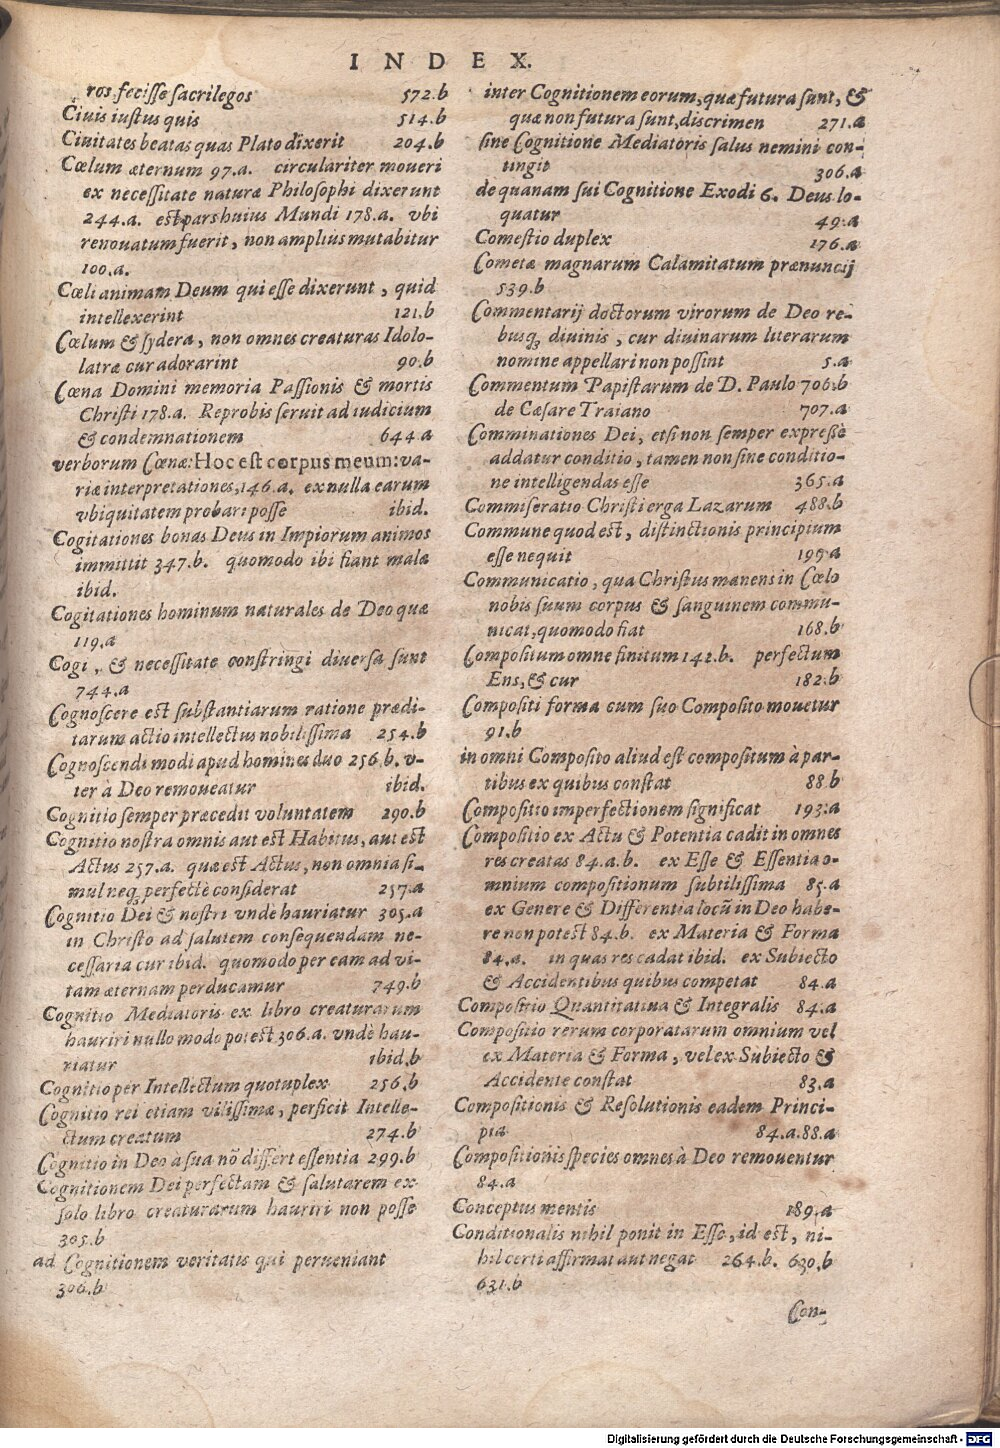 INDEX.
ros fecisse sacrilegos 572.b
Ciuis iustus quis 514.b
Ciuitates beatas quas Plato dixerit 204.b
Cœlum æternum 97.a. circulariter moueri
ex necessitate naturæ Philosophi dixerunt
244.a. est pars huius Mundi 178.a. vbi
renouatum fuerit, non amplius mutabitur
100.a.
Cœli animam Deum qui esse dixerunt, quid
intellexerint 121.b
Cœlum & sydera, non omnes creaturas Idolo-
latræ cur adorarint 90.b
Cœna Domini memoria Passionis & mortis
Christi 178.a. Reprobis seruit ad iudicium
& condemnationem 644.a
verborum Cœnæ: Hoc est corpus meum: va-
riæ interpretationes, 146.a. ex nulla earum
vbiquitatem probari posse ibid.
Cogitationes bonas Deus in Impiorum animos
immittit 347.b. quomodo ibi fiant malæ
ibid.
Cogitationes hominum naturales de Deo quæ
119.a
Cogi, & necessitate constringi diuersa sunt
744.a
Cognoscere est substantiarum ratione prædi-
tarum actio intellectus nobilissima 254.b
Cognoscendi modi apud homines duo 256.b. v-
ter à Deo remoueatur ibid.
Cognitio semper præcedit voluntatem 290.b
Cognitio nostra omnis aut est Habitus, aut est
Actus 257.a. quæ est Actus, non omnia si-
mul neq; perfectè considerat 257.a
Cognitio Dei & nostri vndè hauriatur 305.a
in Christo ad salutem consequendam ne-
cessaria cur ibid. quomodo per eam ad vi-
tam æternam perducamur 749.b
Cognitio Mediatoris ex libro creaturarum
hauriri nullo modo potest 306.a. vndè hau-
riatur ibid.b
Cognitio per Intellectum quotuplex 256.b
Cognitio rei etiam vilissimæ, perficit Intelle-
ctum creatum 274.b
Cognitio in Deo à sua nõ differt essentia 299.b
Cognitionem Dei perfectam & salutarem ex
solo libro creaturarum hauriri non posse
305.b
ad Cognitionem veritatis qui perueniant
306.b
inter Cognitionem eorum, quæ futura sunt, &
quæ non futura sunt, discrimen 271.a
sine Cognitione Mediatoris salus nemini con-
tingit 306.a
de quanam sui Cognitione Exodi 6. Deus lo-
quatur 49.a
Comestio duplex 176.a
Cometæ magnarum Calamitatum prænuncij
539.b
Commentarij doctorum virorum de Deo re-
busq; diuinis, cur diuinarum literarum
nomine appellari non possint 5.a
Commentum Papistarum de D. Paulo 706.b
de Cæsare Traiano 707.a
Comminationes Dei, etsi non semper expressè
addatur conditio, tamen non sine conditio-
ne intelligendas esse 365.a
Commiseratio Christi erga Lazarum 488.b
Commune quod est, distinctionis principium
esse nequit 199.a
Communicatio, qua Christus manens in Cœlo
nobis suum corpus & sanguinem commu-
nicat, quomodo fiat 168.b
Compositum omne finitum 142.b. perfectum
Ens, & cur 182.b
Compositi forma cum suo Composito mouetur
91.b
in omni Composito aliud est compositum à par-
tibus ex quibus constat 88.b
Compositio imperfectionem significat 193.a
Compositio ex Actu & Potentia cadit in omnes
res creatas 84.a.b. ex Esse & Essentia o-
mnium compositionum subtilissima 85.a
ex Genere & Differentia locũ in Deo habe-
re non potest 84.b. ex Materia & Forma
84.a. in quas res cadat ibid. ex Subiecto
& Accidentibus quibus competat 84.a
Compositio Quantitatiua & Integralis 84.a
Compositio rerum corporatarum omnium vel
ex Materia & Forma, vel ex Subiecto &
Accidente constat 83.a
Compositionis & Resolutionis eadem Princi-
pia 84.a.88.a
Compositionis species omnes à Deo remouentur
84.a
Conceptus mentis 189.a
Conditionalis nihil ponit in Esse, id est, ni-
hil certi affirmat aut negat 264.b. 630.b
631.b
Con-
Digitalisierung gefördert durch die Deutsche Forschungsgemeinschaft - DFG